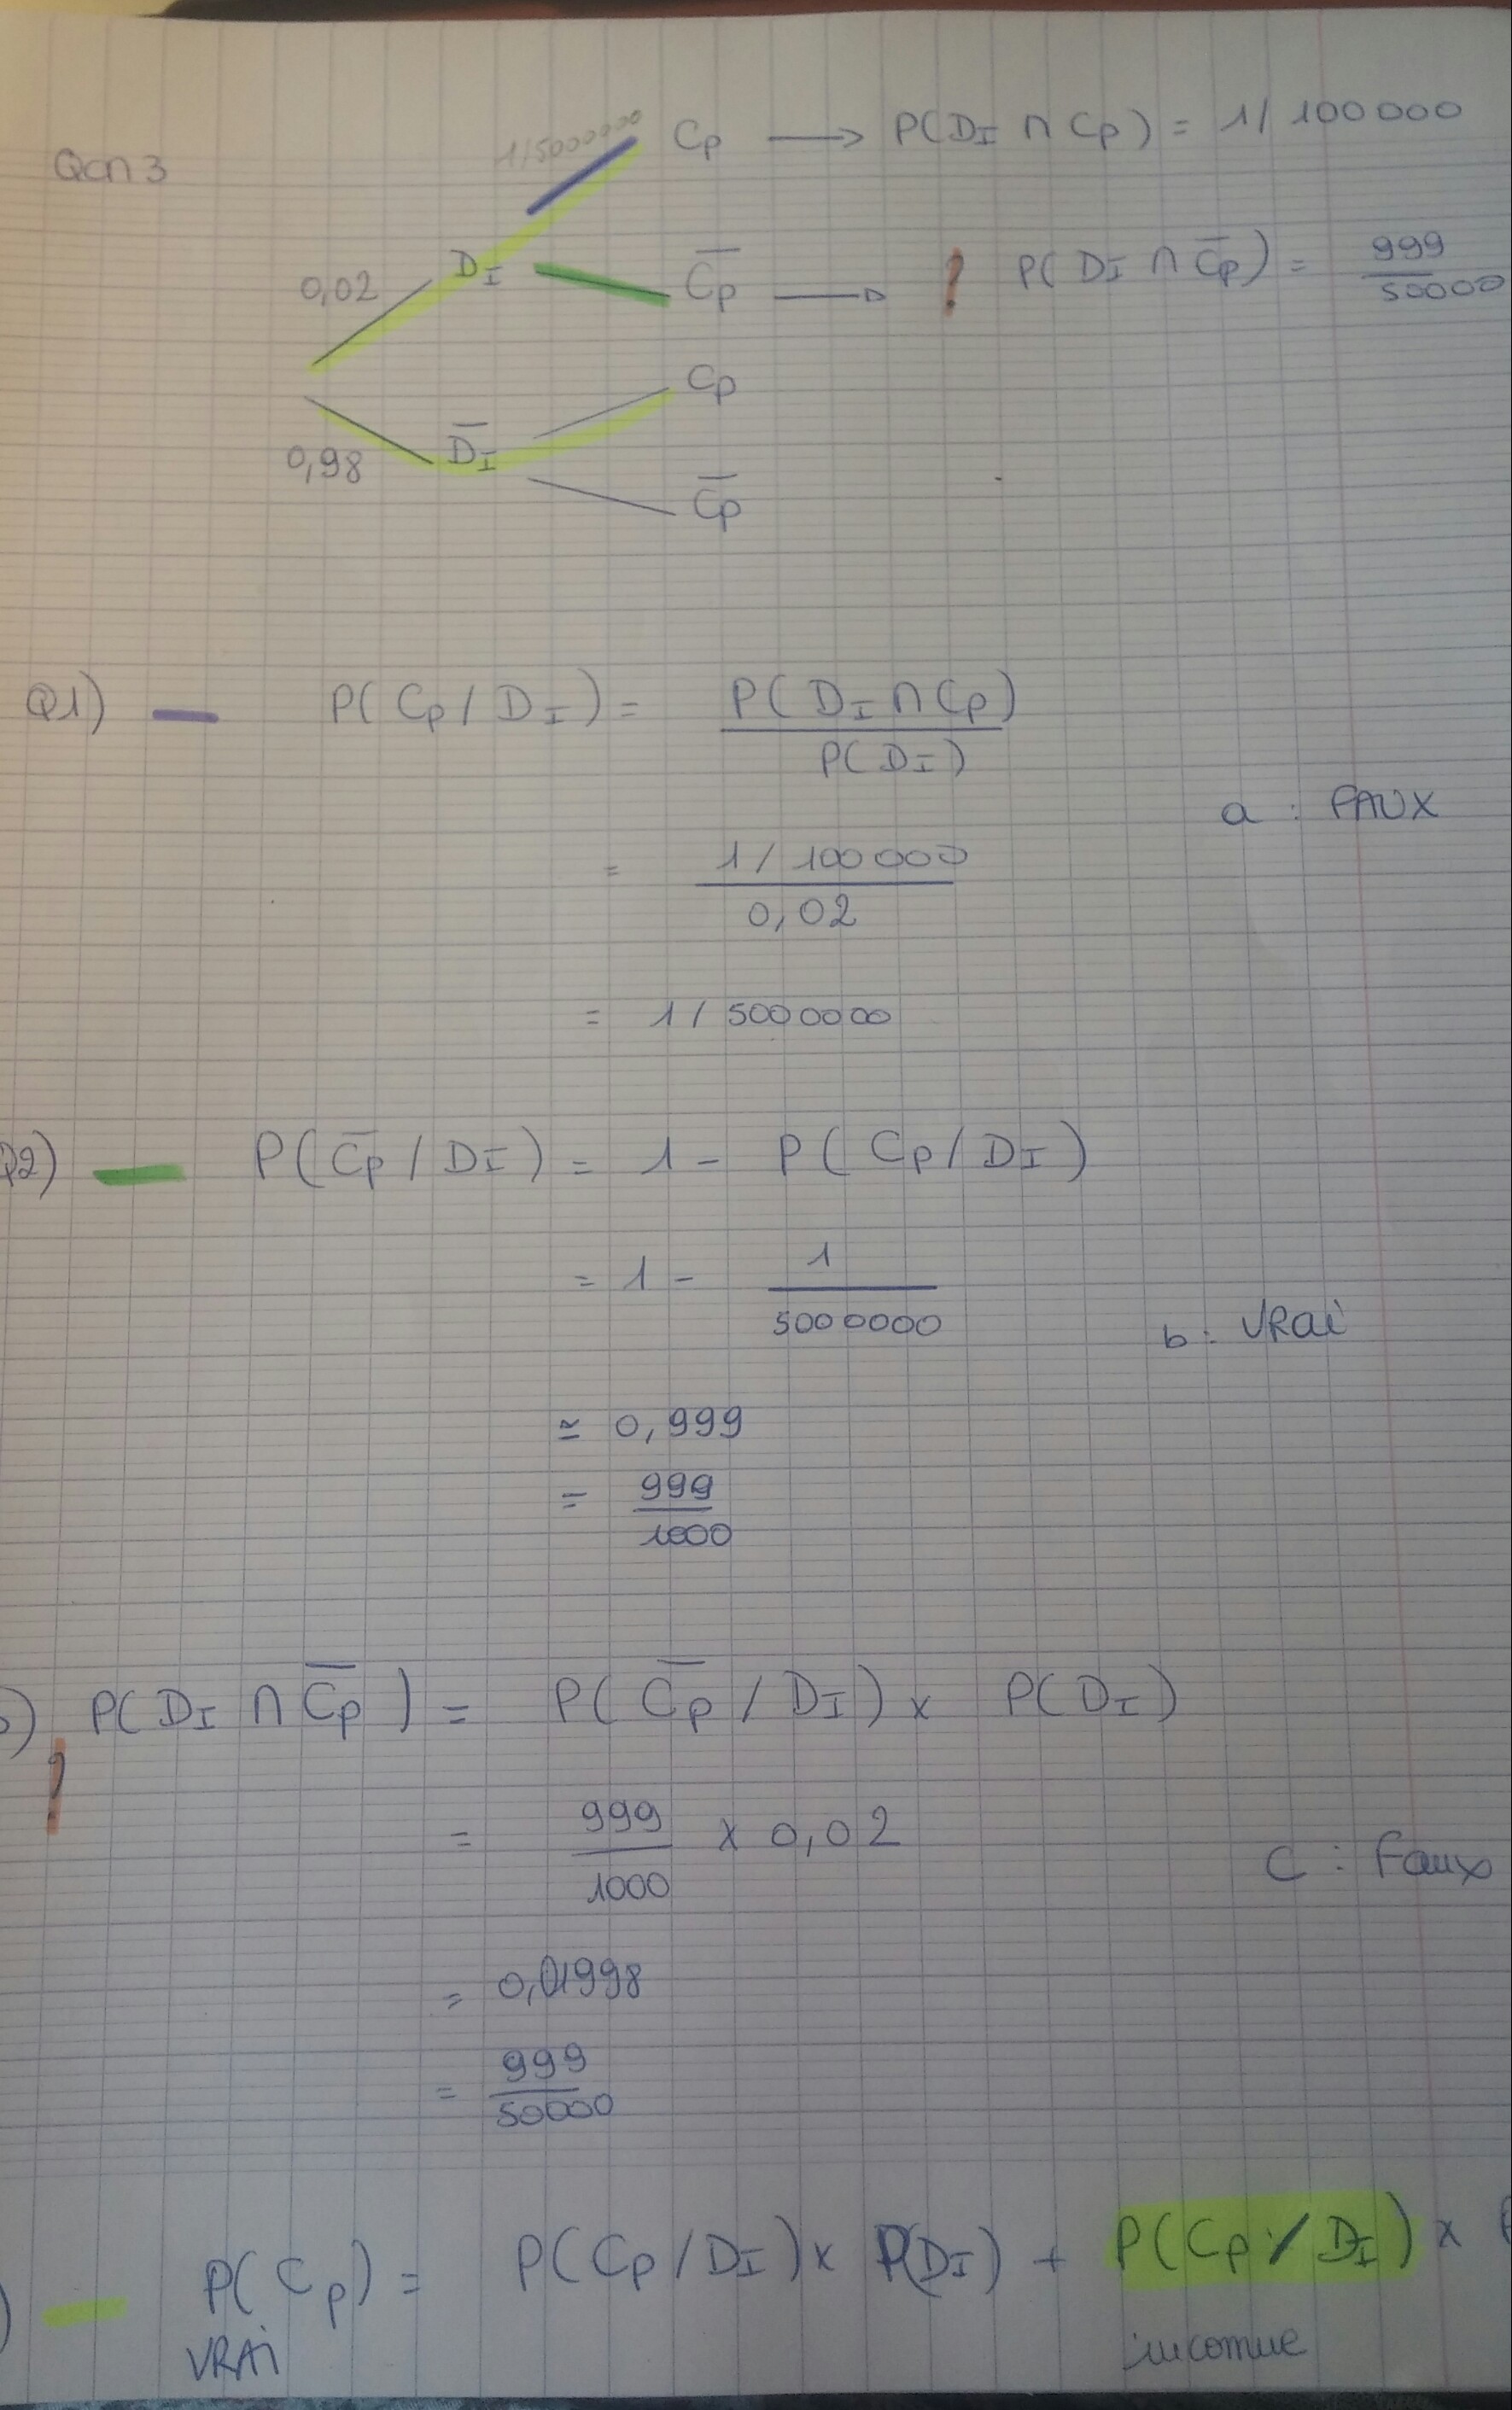 QCM 3
1/5000000 Cp → P(DI ∩ Cp) = 1/100000
0,02 DI C̅p → ! P(DI ∩ C̅p) = 999/50000
Cp
0,98 D̅I
C̅p
Q1) — P(Cp/DI) = P(DI ∩ Cp)
P(DI)
a : FAUX
= 1/100000
0,02
= 1/5000000
Q2) — P(C̅p/DI) = 1 - P(Cp/DI)
= 1 - 1
5000000
b : VRai
≃ 0,999
= 999
1000
) P(DI ∩ C̅p) = P(C̅p/DI) x P(DI)
!
= 999 x 0,02
1000
C : Faux
= 0,01998
= 999
50000
) — P(Cp) = P(Cp/DI) x P(DI) + P(Cp/DI) x
VRAi inconnue